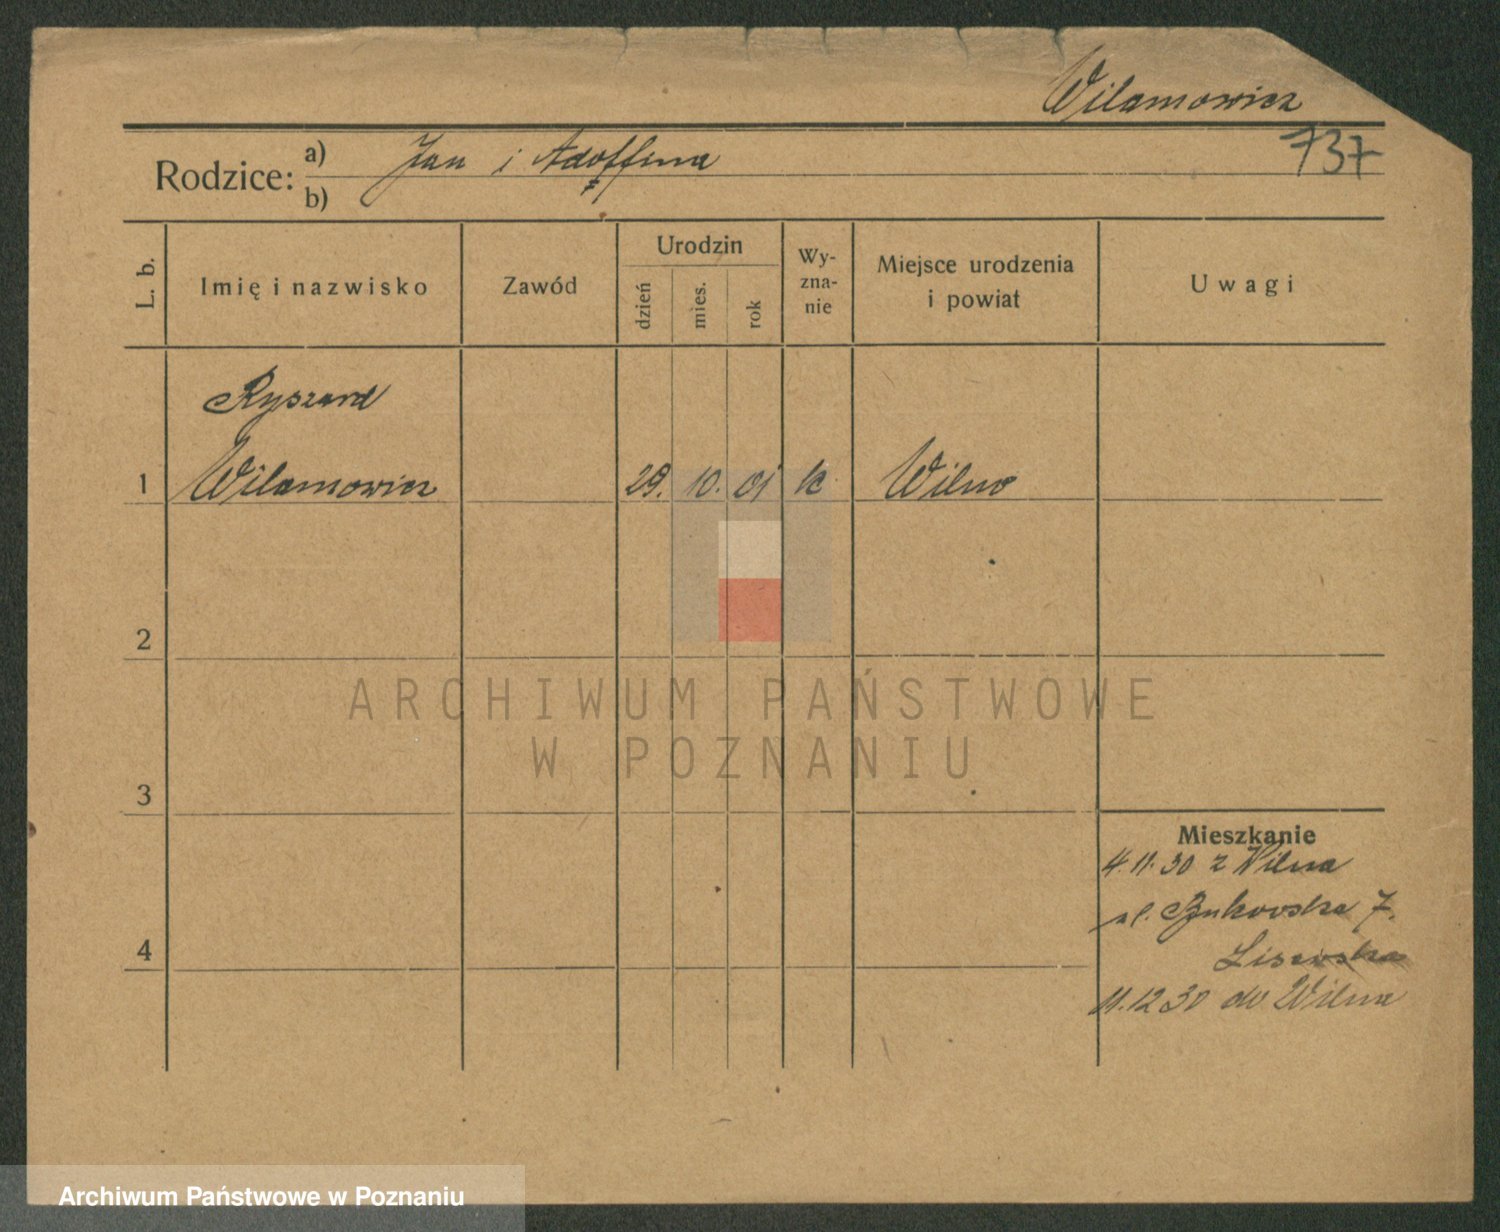 Wilamowicz
737
Rodzice: a) Jan i Adolfina
b)
L. b. Imię i nazwisko Zawód Urodzin dzień mies. rok Wyzna-nie Miejsce urodzenia i powiat Uwagi
Ryszard
1 Wilamowicz 29. 10. 01 k Wilno
2
ARCHIWUM PAŃSTWOWE
W POZNANIU
3
Mieszkanie
4.11.30 z Wilna
ul. Bukowska 7.
4
Lisewska
11.12 30 do Wilna
Archiwum Państwowe w Poznaniu